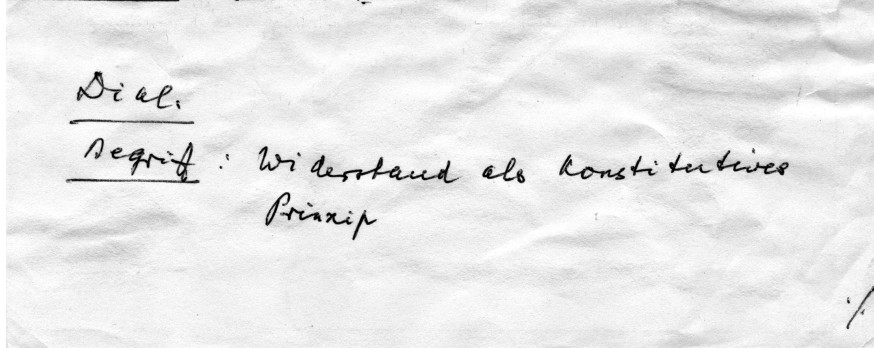 Dial.
Begriff : Widerstand als konstitutives
Prinzip
./.